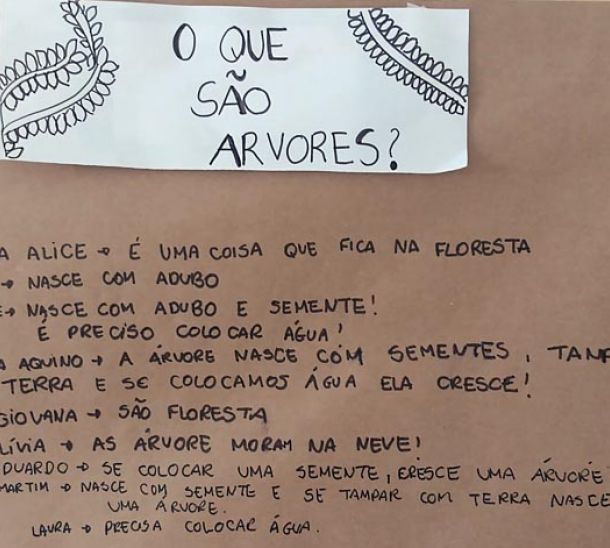 O QUE
SÃO
ARVORES?
A ALICE → É UMA COISA QUE FICA NA FLORESTA
→ NASCE COM ADUBO
E → NASCE COM ADUBO E SEMENTE!
É PRECISO COLOCAR ÁGUA!
A AQUINO → A ÁRVORE NASCE COM SEMENTES, TAMP
TERRA E SE COLOCAMOS ÁGUA ELA CRESCE!
GIOVANA → SÃO FLORESTA
LÍVIA → AS ÁRVORE MORAM NA NEVE!
DUARDO → SE COLOCAR UMA SEMENTE, CRESCE UMA ÁRVORE
MARTIM → NASCE COM SEMENTE E SE TAMPAR COM TERRA NASCE
UMA ARVORE.
LAURA → PRECISA COLOCAR ÁGUA.